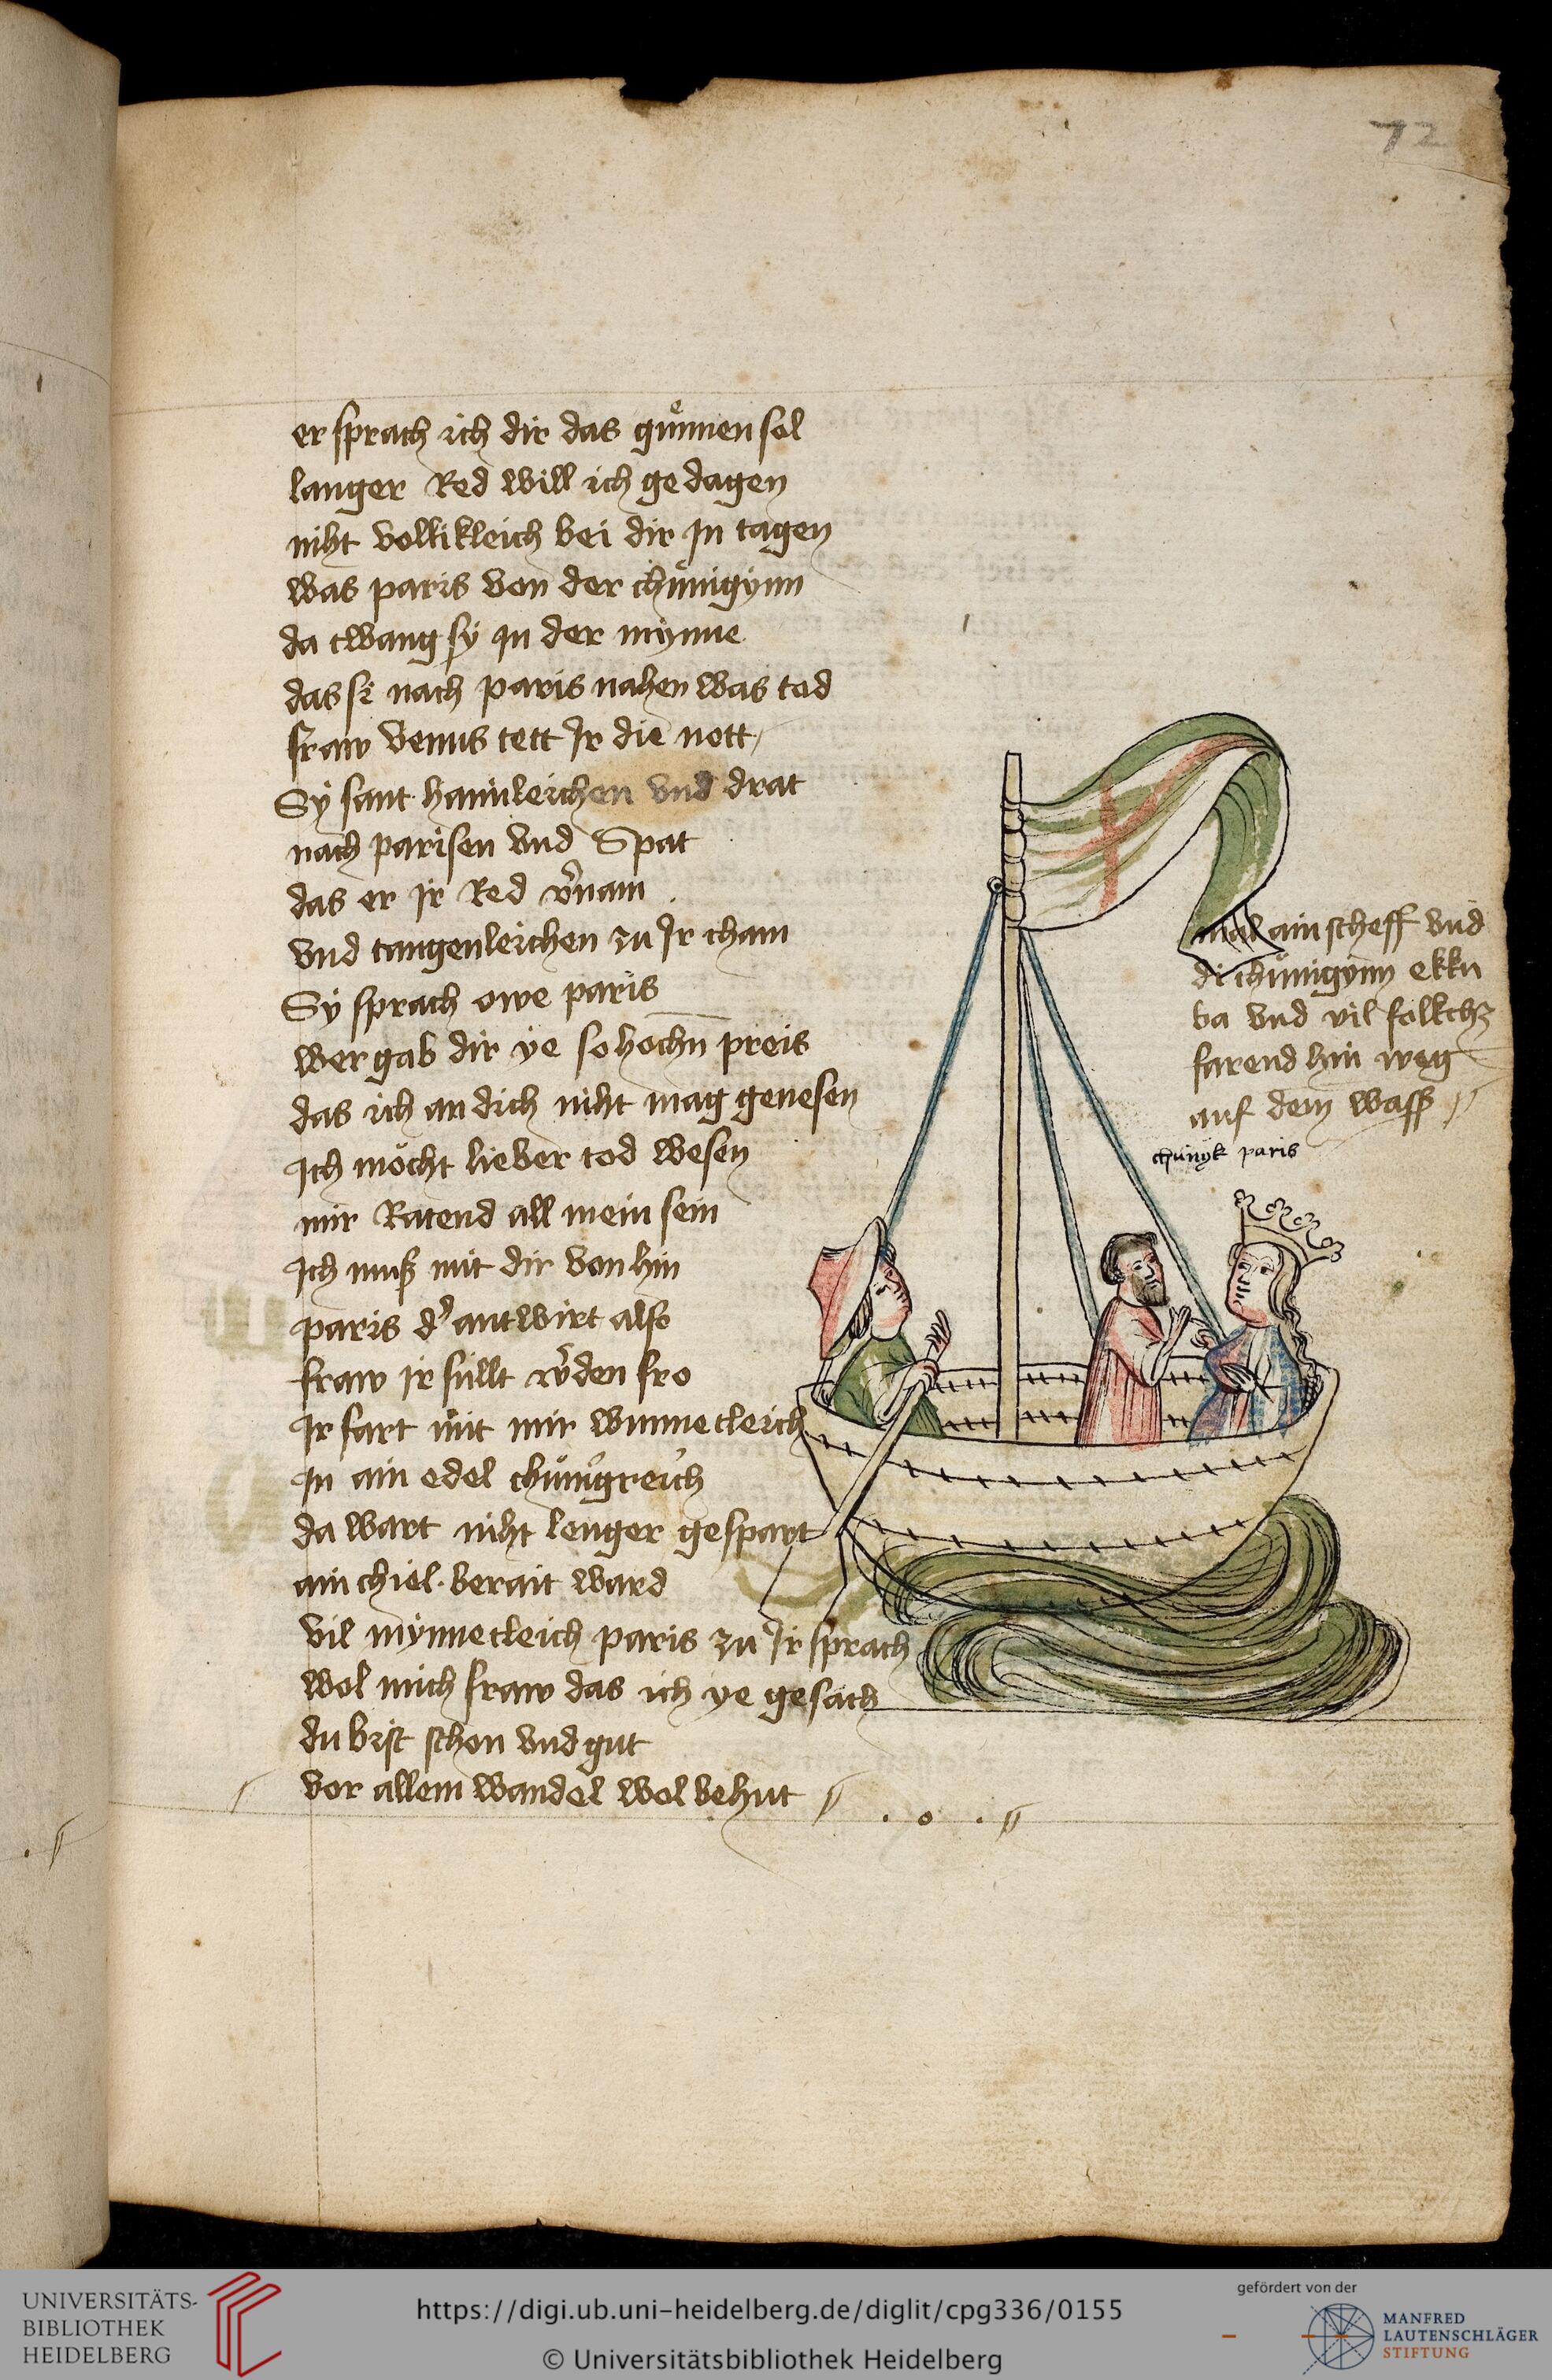 72
er sprach ich dir das guͤnnen sol
langer Red will ich gedagen
niht vollikleich bei dir In tagen
was paris von der chuͤnigÿnn
da twang sÿ In der mÿnne
das si nach paris nahen was tod
fraw venus tett Ir die nott
Sÿ sant haimleichen vnd drat
nach parisen vnd Spat
das er Ir Red v̾nam
vnd taugenleichen zu Ir cham
Sÿ sprach owe paris
wer gab dir ye so hochn̄ preis
das ich an dich niht mag genesen
Ich moͤcht lieber tod wesen
mir Ratend all mein sein
Ich muß mit dir von hin
paris d̾ antwirt also
fraw Ir suͤllt w̾den fro
Ir fart mit mir wunnecleich
In ain edel chuͤnigreich
da wart niht lenger gespart
ain chiel berait ward
vil mÿnnecleich paris zu Ir sprach
wol mich fraw das ich ye gesach
du bist schon vnd gut
vor allem wandel wol behut
mal ain scheff vnd
di chuͤnigynn ekku
ba vnd vil follkchz
farend hin weg
auf dem wass̾
chuͤnÿk paris
UNIVERSITÄTS-
BIBLIOTHEK
HEIDELBERG
https://digi.ub.uni-heidelberg.de/diglit/cpg336/0155
© Universitätsbibliothek Heidelberg
gefördert von der
MANFRED
LAUTENSCHLÄGER
STIFTUNG